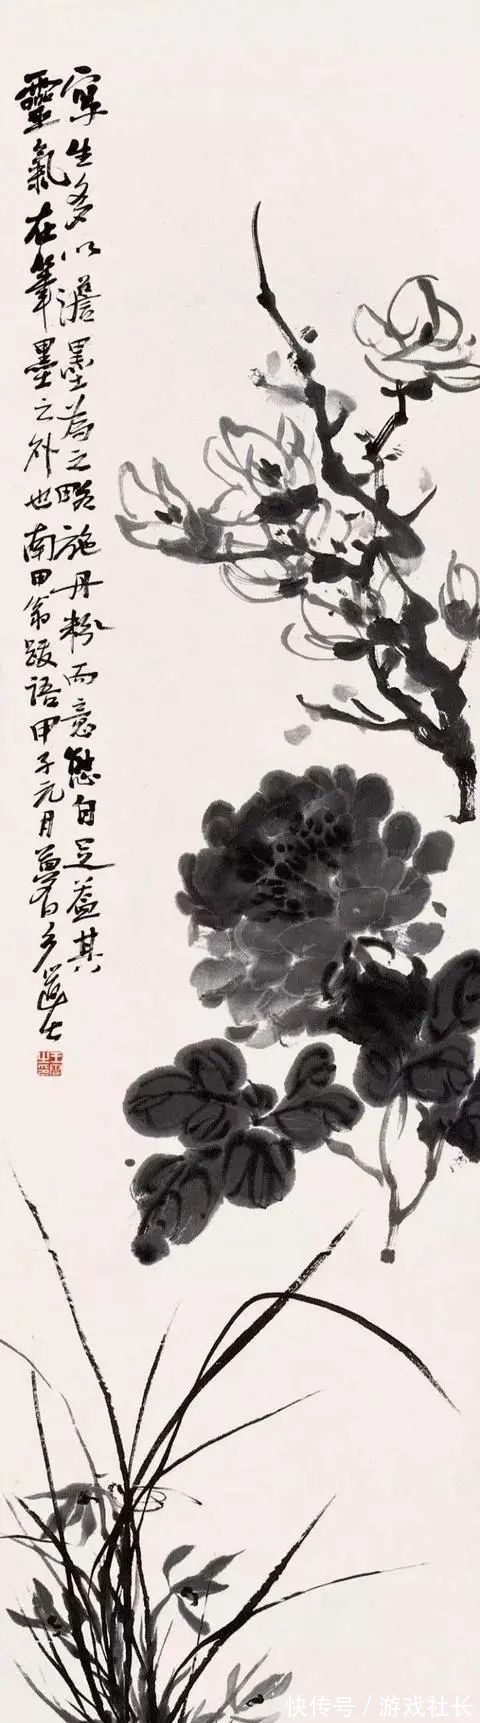 寫生多以澹墨為之略施丹粉而意態自足蓋其
靈氣在筆墨之外也南田翁跋語甲子元月夢白道士
王雲之印
快传号/游戏社长